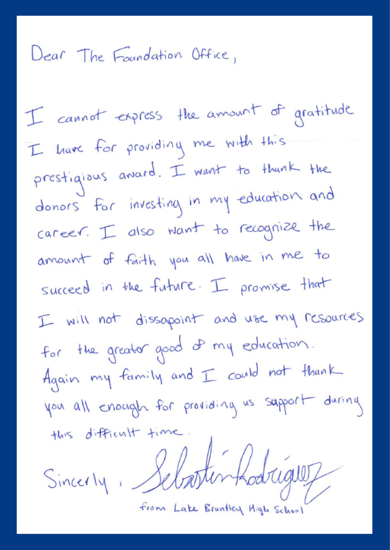 Dear The Foundation Office,
I cannot express the amount of gratitude
I have for providing me with this
prestigious award. I want to thank the
donors for investing in my education and
career. I also want to recognize the
amount of faith you all have in me to
succeed in the future. I promise that
I will not dissapoint and use my resources
for the greater good of my education.
Again my family and I could not thank
you all enough for providing us support during
this difficult time.
Sincerly, Sebastin Rodriguez
from Lake Brantley High School